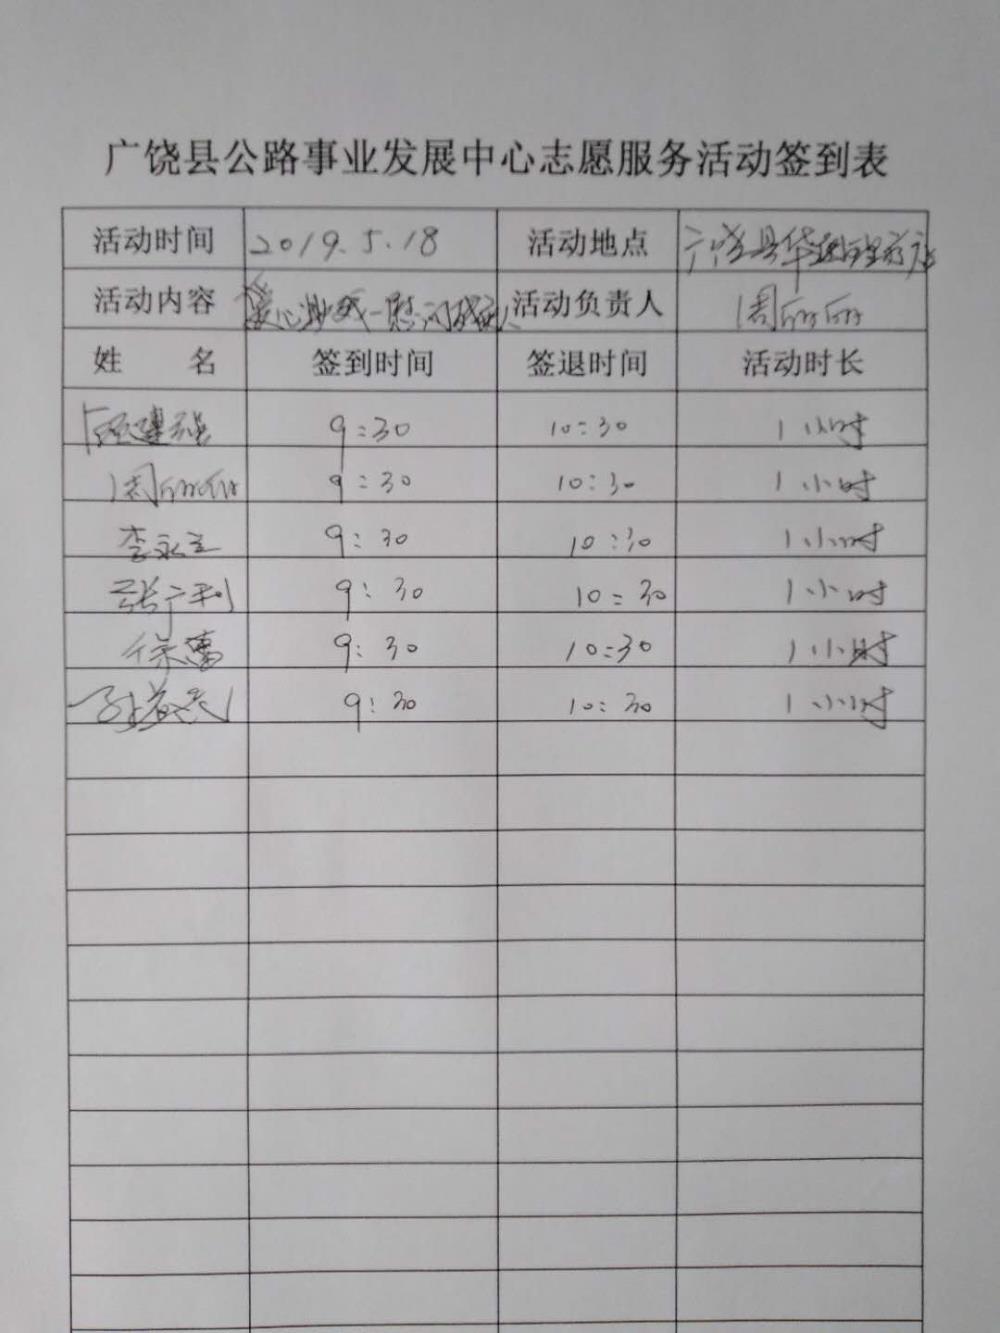 广饶县公路事业发展中心志愿服务活动签到表
活动时间 2019.5.18 活动地点 广饶县华
活动内容 爱心 慰问残疾人 活动负责人 周丽丽
姓 名 签到时间 签退时间 活动时长
9:30 10:30 1小时
周丽丽 9:30 10:30 1小时
李永立 9:30 10:30 1小时
张广利 9:30 10:30 1小时
徐 9:30 10:30 1小时
孙 9:30 10:30 1小时